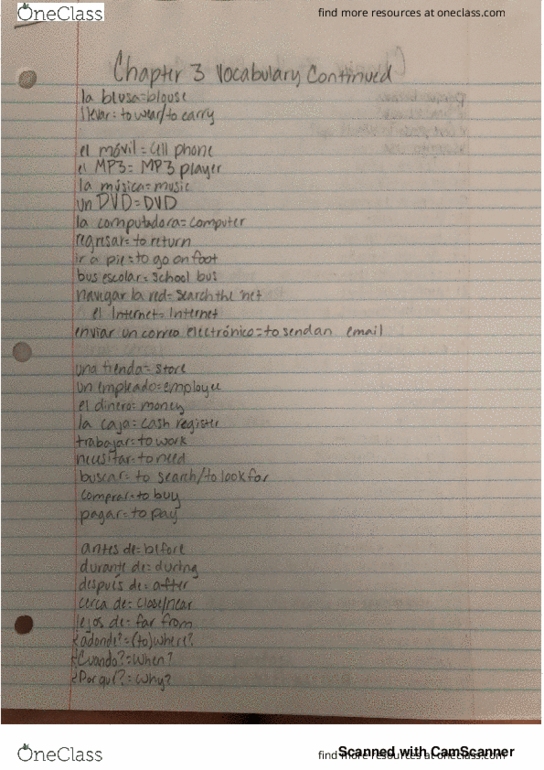 OneClass
find more resources at oneclass.com
Chapter 3 Vocabulary Continued
la blusa=blouse
llevar=to wear/to carry
el móvil=cell phone
el MP3=MP3 player
la música=music
un DVD=DVD
la computadora=computer
regresar=to return
ir a pie=to go on foot
bus escolar=school bus
navegar la red=search the net
el Internet=Internet
enviar un correo electrónico=to send an email
una tienda=store
un empleado=employee
el dinero=money
la caja=cash register
trabajar=to work
necesitar=to need
buscar=to search/to look for
comprar=to buy
pagar=to pay
antes de=before
durante de=during
después de=after
cerca de=close/near
lejos de=far from
¿adonde?=(to)where?
¿Cuando?=When?
¿Por qué?=Why?
OneClass
find more resources at oneclass.com
Scanned with CamScanner